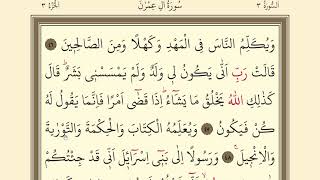 السُّورَةُ ٣ سُورَةُ اٰلِ عِمْرٰنَ اَلْجُزْءُ ٣
وَيُكَلِّمُ النَّاسَ فِى الْمَهْدِ وَكَهْلًا وَمِنَ الصَّالِحِينَ ﴿٤٦﴾
قَالَتْ رَبِّ اَنّٰى يَكُونُ لِى وَلَدٌ وَلَمْ يَمْسَسْنِى بَشَرٌ قَالَ
كَذٰلِكِ اللّٰهُ يَخْلُقُ مَا يَشَاءُ اِذَا قَضٰى اَمْرًا فَاِنَّمَا يَقُولُ لَهُ
كُنْ فَيَكُونُ ﴿٤٧﴾ وَيُعَلِّمُهُ الْكِتَابَ وَالْحِكْمَةَ وَالتَّوْرٰيةَ
وَالْاِنْجِيلَ ﴿٤٨﴾ وَرَسُولًا اِلٰى بَنِى اِسْرَائِلَ اَنِّى قَدْ جِئْتُكُمْ